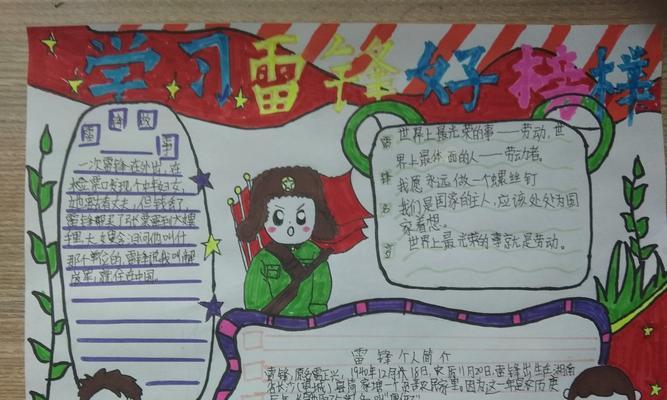 学习雷锋好榜样
雷锋故事
一次雷锋在外出，在
检票口发现个中年妇女，
她要去丈夫，但钱丢了，
雷锋买了张票塞到大嫂
手里，大嫂含泪问他叫什
那个单位的，雷锋说我叫解
放军，就住在中国。
雷锋名言
世界上最光荣的事——劳动，世
界上最体面的人——劳动者。
我愿永远做一个螺丝钉
我们是国家的主人，应该处处为国
家着想。
世界上最光荣的事就是劳动。
雷锋个人简介
雷锋，原名雷正兴，1940年12月18日，农历11月20日，雷锋出生在湖南